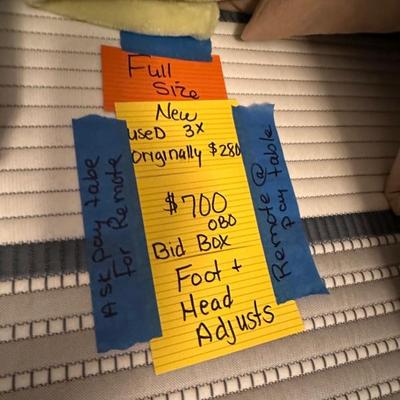 Full
Size
New
useD 3X
Originally $280
$700
OBO
Bid Box
Foot +
Head
Adjusts
Ask pay tabe
For Remote
Remote @
pay table